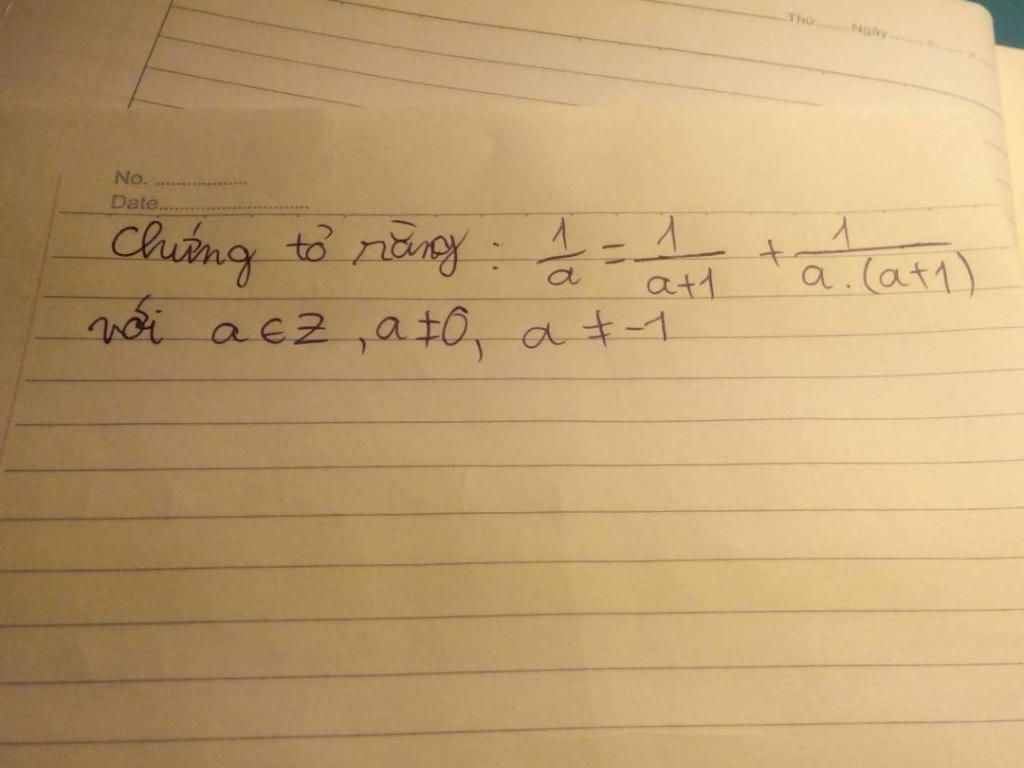 Thứ....... Ngày
No. ..................
Date.............................
Chứng tỏ rằng : 1/a = 1/a+1 + 1/a.(a+1)
với a ∈ Z , a ≠ 0, a ≠ -1